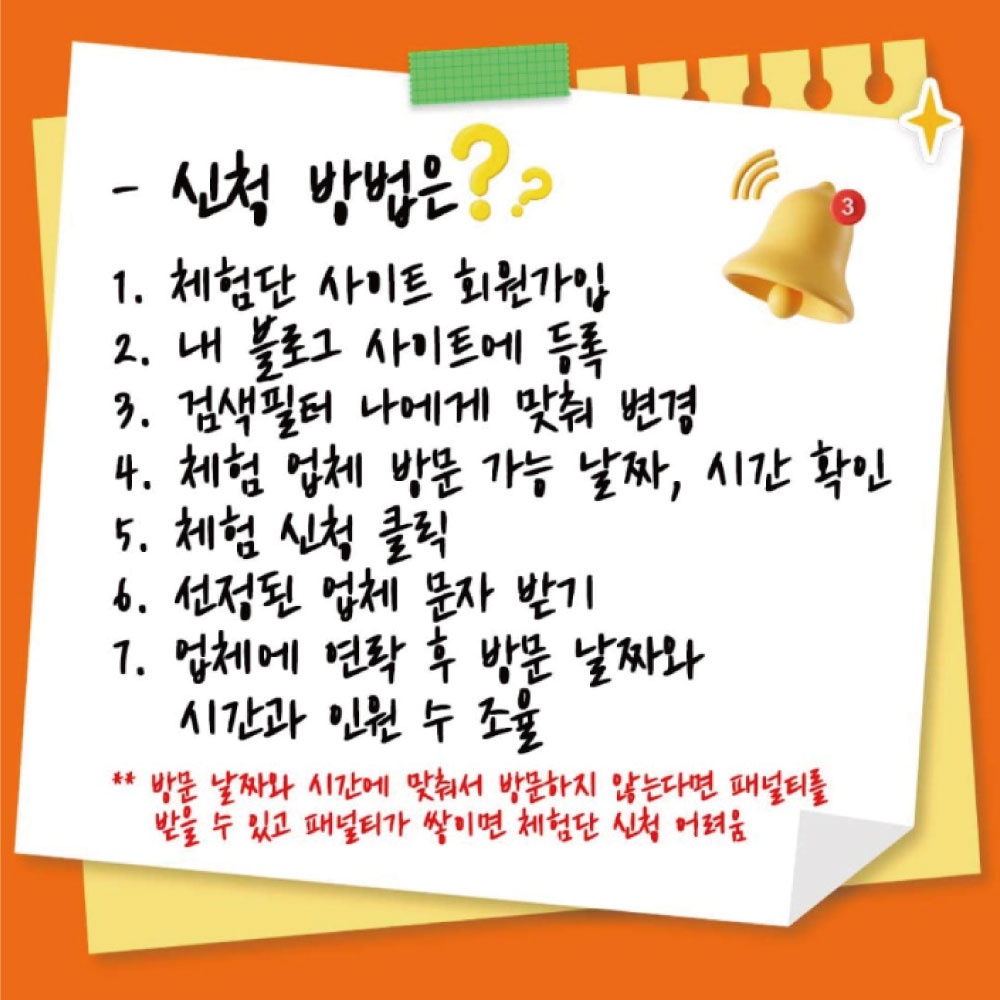 - 신청 방법은??
3
1. 체험단 사이트 회원가입
2. 내 블로그 사이트에 등록
3. 검색필터 나에게 맞춰 변경
4. 체험 업체 방문 가능 날짜, 시간 확인
5. 체험 신청 클릭
6. 선정된 업체 문자 받기
7. 업체에 연락 후 방문 날짜와
시간과 인원 수 조율
** 방문 날짜와 시간에 맞춰서 방문하지 않는다면 패널티를
받을 수 있고 패널티가 쌓이면 체험단 신청 어려움